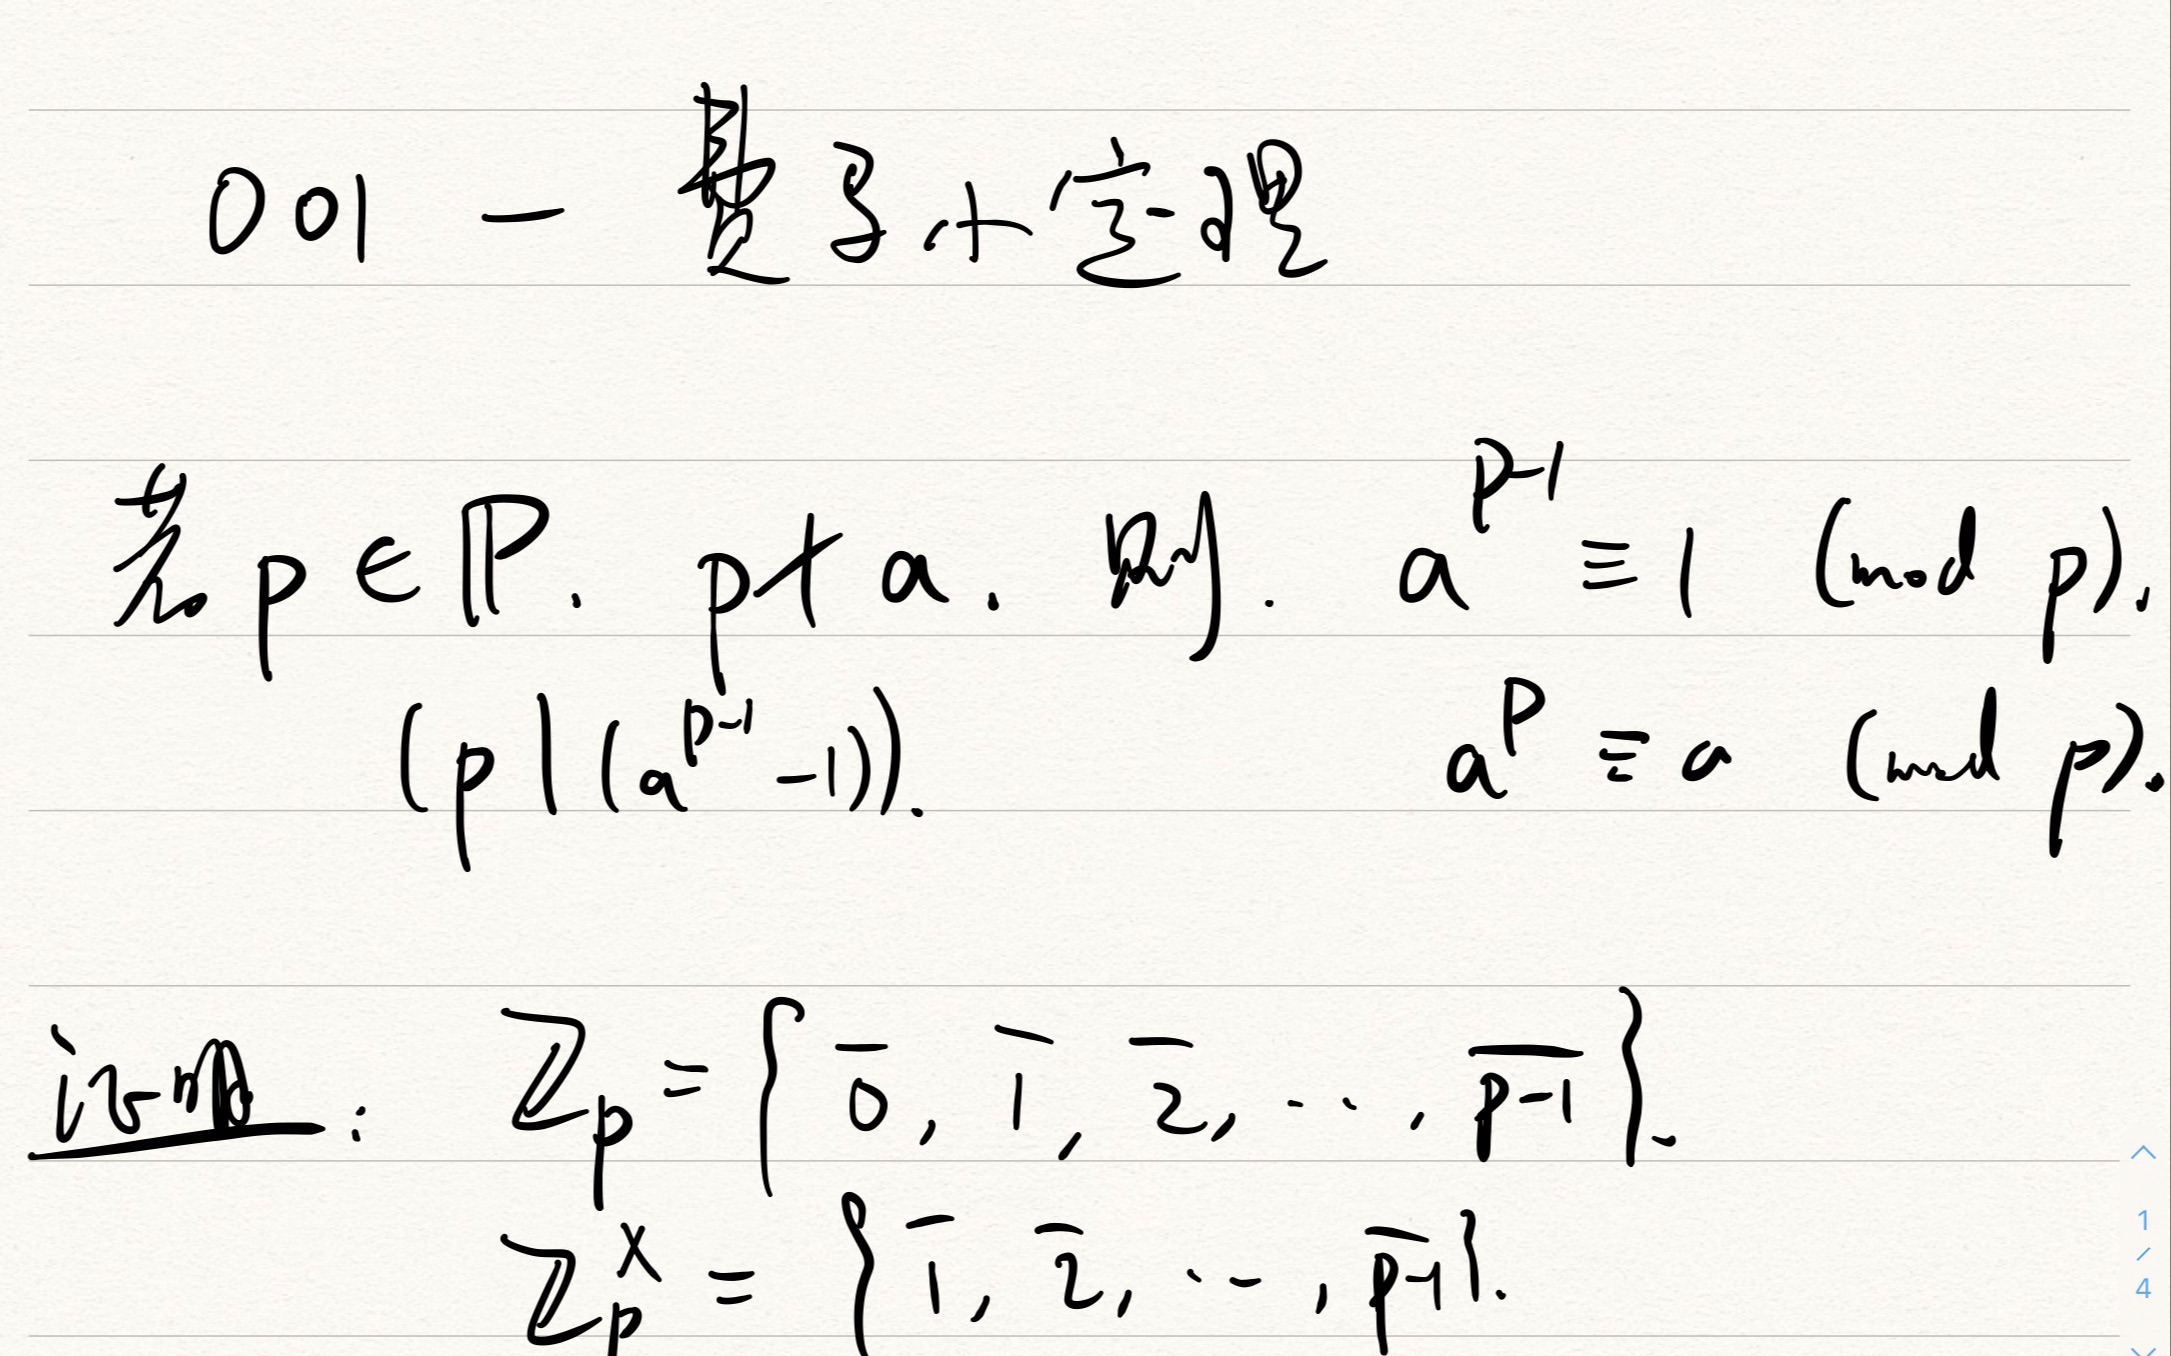 001 — 费马小定理
若 p ∈ ℙ. p ∤ a. 则. a^{p-1} ≡ 1 (mod p).
(p | (a^{p-1} -1)). a^p ≡ a (mod p).
证明: ℤ_p = { \overline{0}, \overline{1}, \overline{2}, ..., \overline{p-1} }.
ℤ_p^× = { \overline{1}, \overline{2}, ..., \overline{p-1} }.
1
/
4